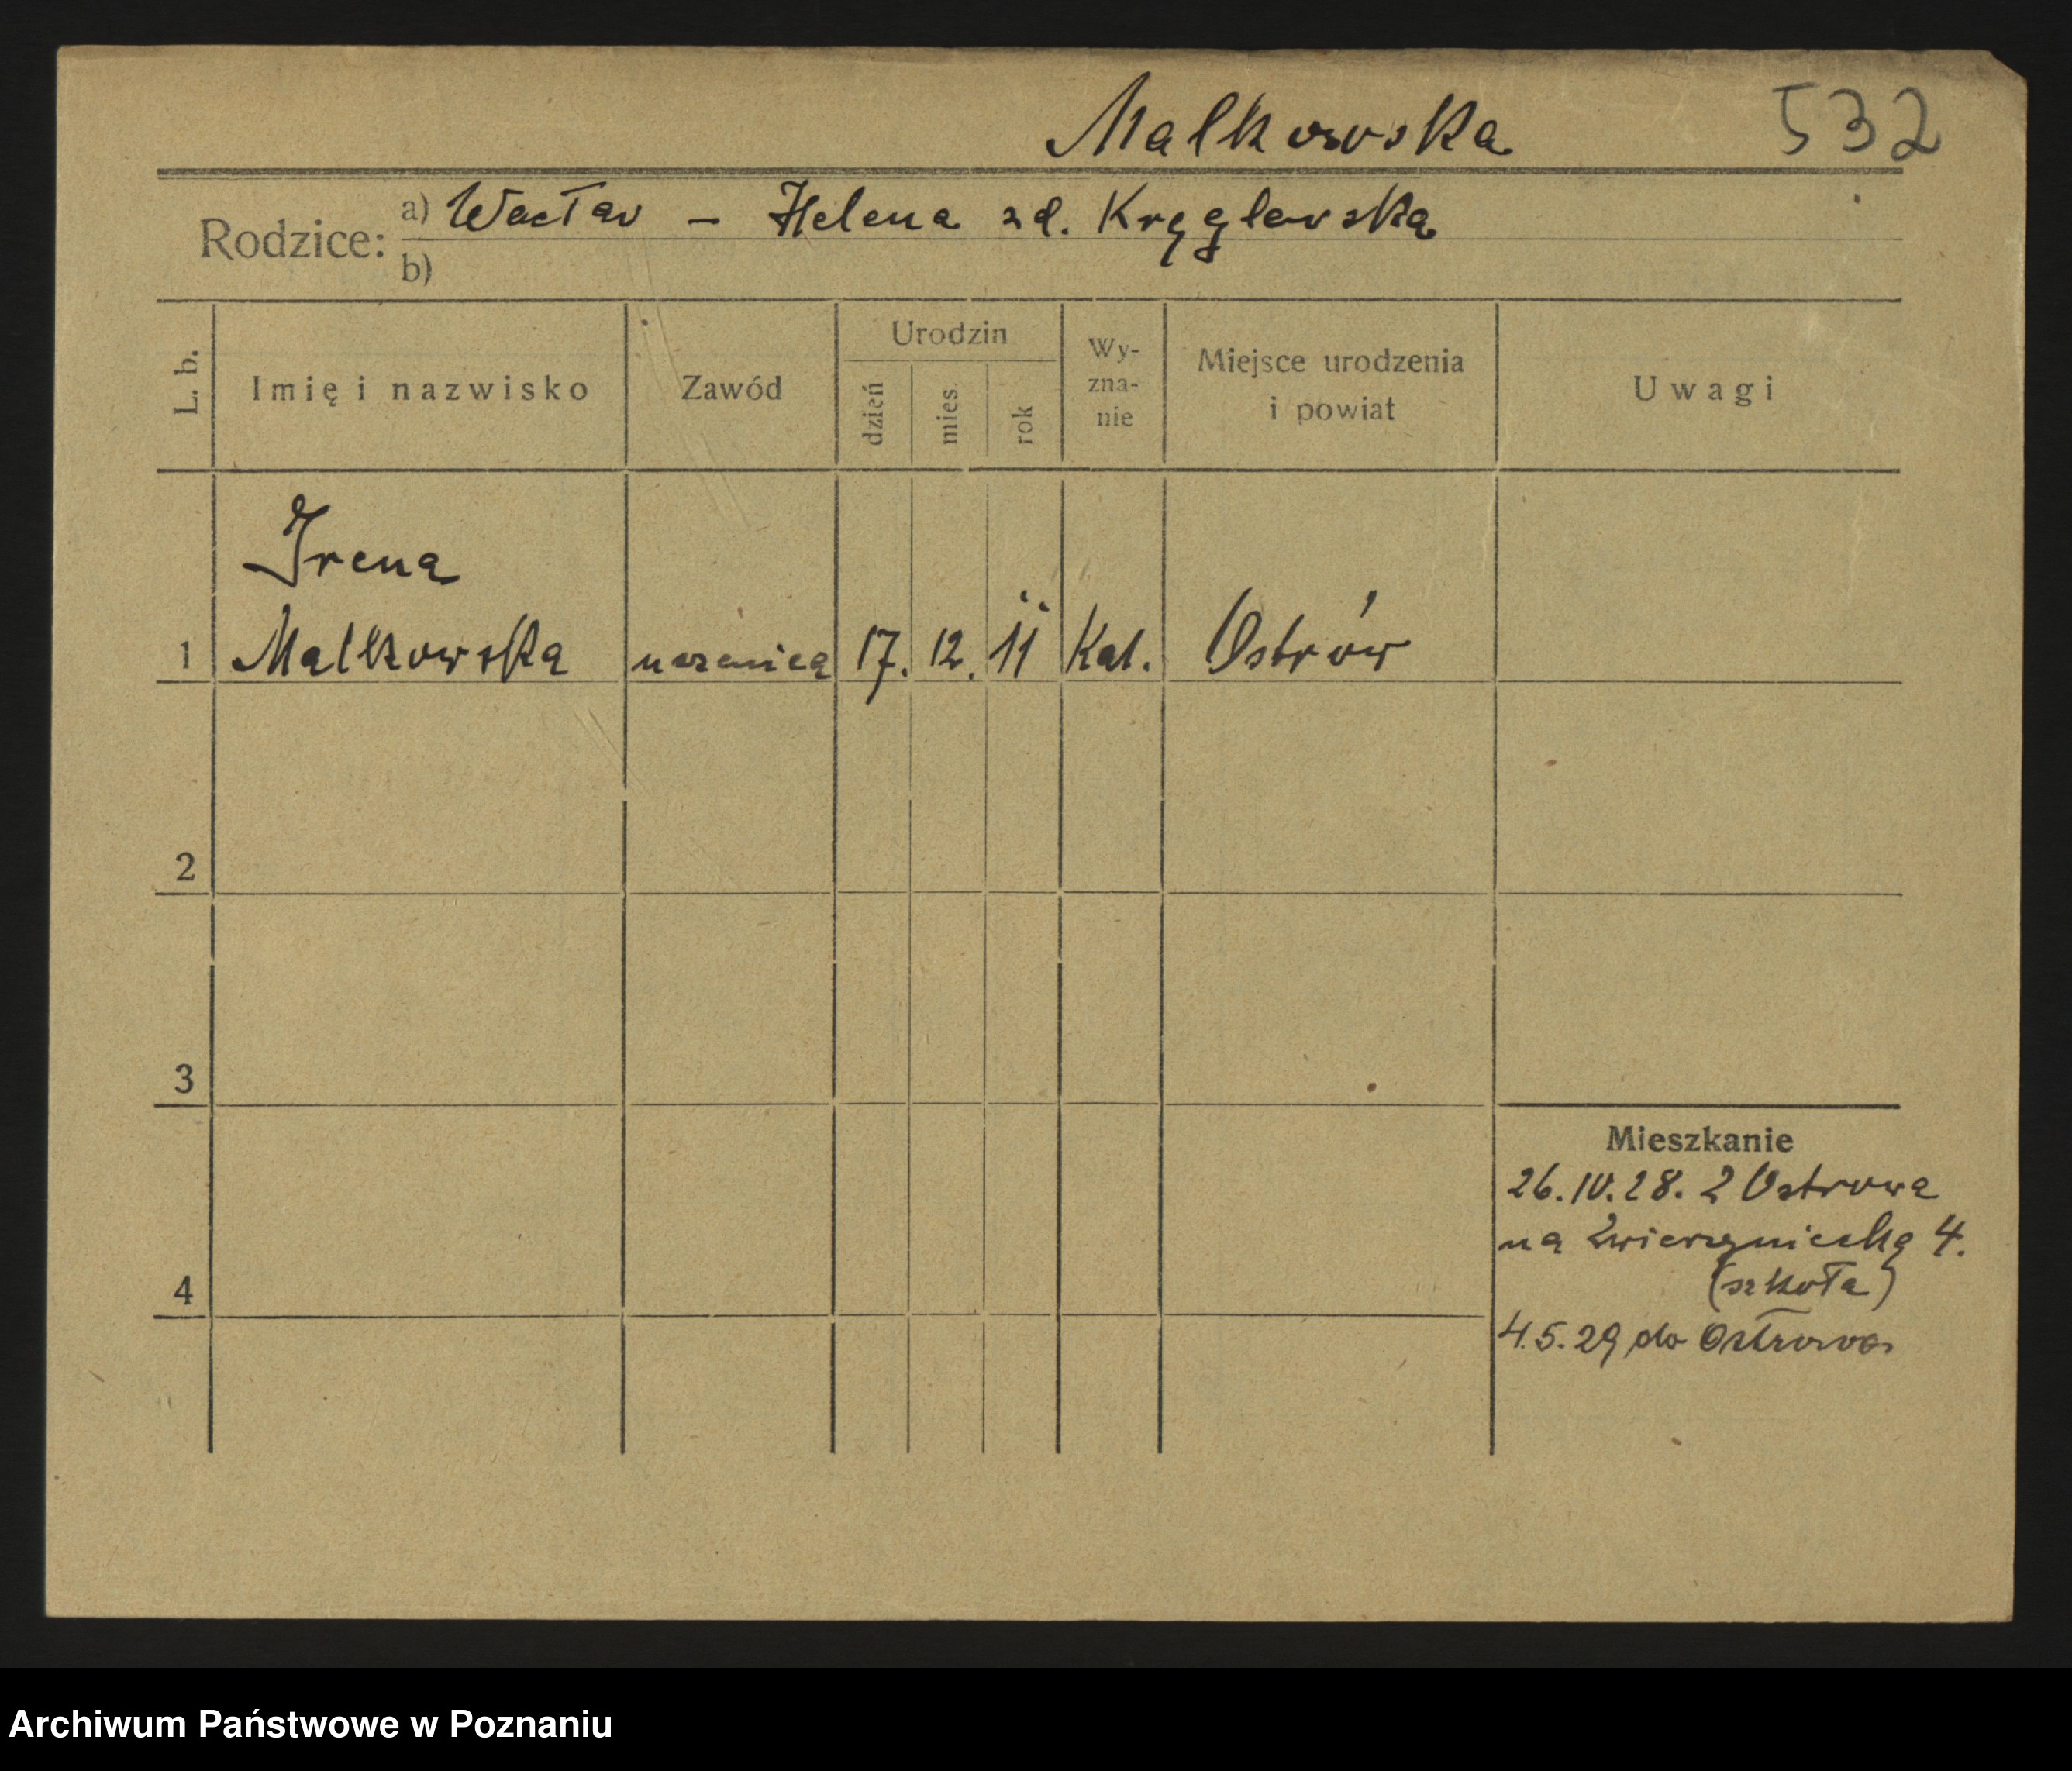 Malkowska 532
Rodzice: a) Wacław – Helena zd. Kręglewska
b)
L. b. Imię i nazwisko Zawód Urodzin dzień mies. rok Wy-zna-nie Miejsce urodzenia i powiat Uwagi
Irena
1 Malkowska uczenica 17. 12. 11 Kat. Ostrów
2
3
Mieszkanie
26.IV.28. z Ostrowa
na Zwierzyniecką 4.
4 (szkoła)
4.5.29 do Ostrowa
Archiwum Państwowe w Poznaniu